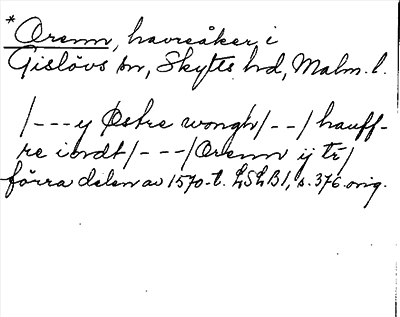 *Orenn, havreåker i
Gislövs sn, Skytts hd, Malm. l.
/---y Østre wongh/--/ hauff-
re iordt/---/Orenn ij tr/
förra delen av 1570-t. LSLB1, s. 376 orig.